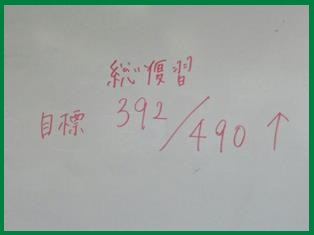 総復習
目標 392/490↑